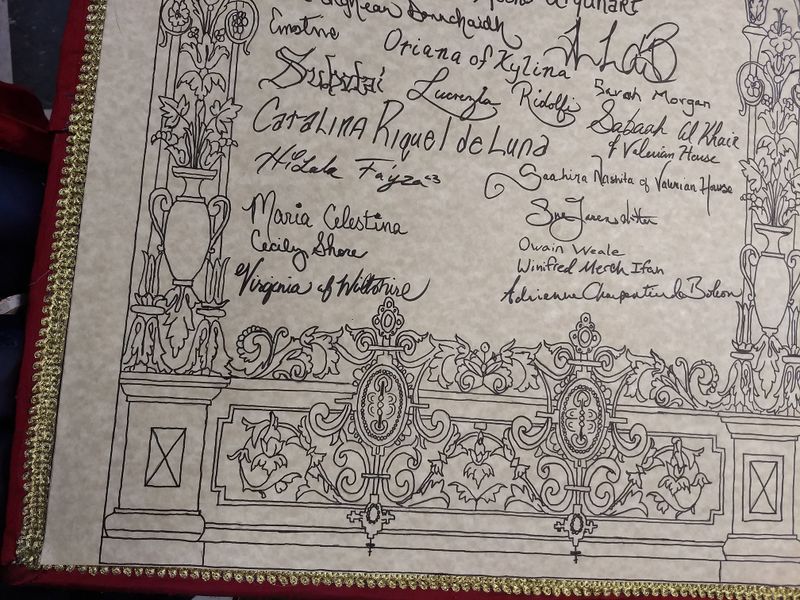 Urquhart
Emotrue
Oriana of Kylina
Lucrezia Ridolfi
Sarah Morgan
Catalina Riquel de Luna
Sabaah al Khair
of Valerian House
Hilala Fayza <3
Saahira Nashita of Valerian House
Maria Celestina
Cecily Shore
Owain Weale
Winifred Merch Ifan
Virginia of Wiltshire
Adrienne Charpentier de